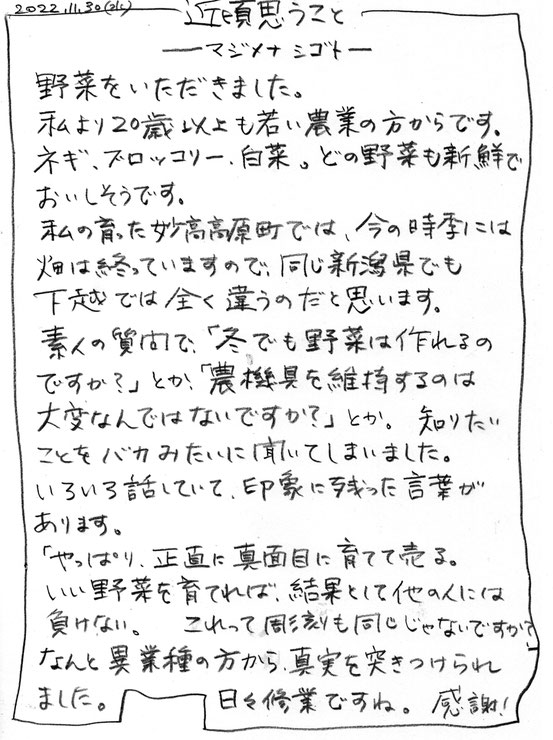 2022.11.30(水)
近頃思うこと
―マジメナシゴト―
野菜をいただきました。
私より20歳以上も若い農業の方からです。
ネギ、ブロッコリー、白菜。どの野菜も新鮮で
おいしそうです。
私の育った妙高高原町では、今の時季には
畑は終っていますので、同じ新潟県でも
下越では全く違うのだと思います。
素人の質問で、「冬でも野菜は作れるの
ですか?」とか、「農機具を維持するのは
大変なんではないですか?」とか。 知りたい
ことをバカみたいに聞いてしまいました。
いろいろ話していて、印象に残った言葉が
あります。
「やっぱり、正直に真面目に育てて売る。
いい野菜を育てれば、結果として他の人には
負けない。 これって彫刻も同じじゃないですか?」
なんと異業種の方から、真実を突きつけられ
ました。 日々修業ですね。 感謝!